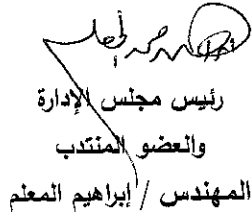 رئيس مجلس الإدارة
والعضو المنتدب
المهندس / إبراهيم المعلم